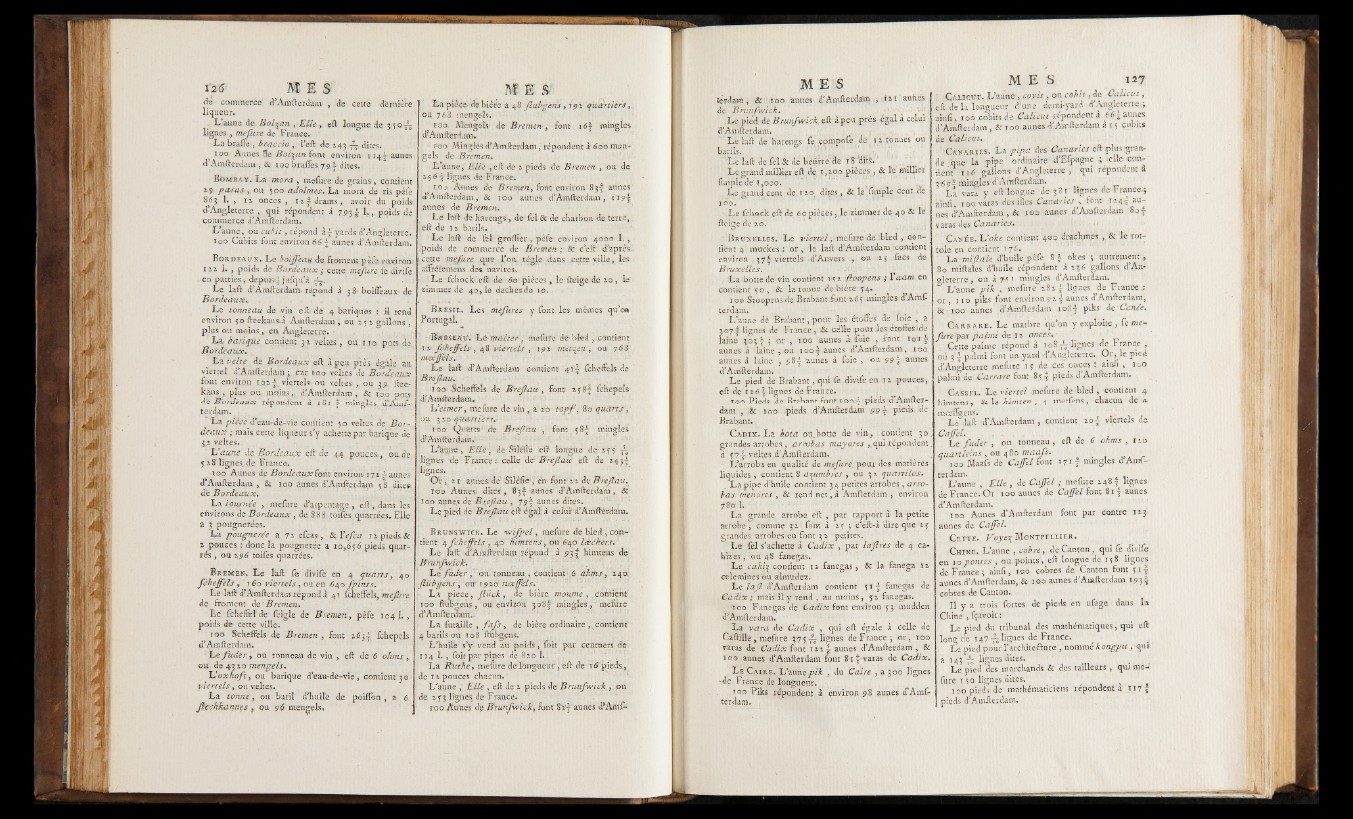 126 MES
de commerce d'Amſterdam , de cette dernière
liqueur.
L'aune de Bolzan , Elle , eſt longue de 350
lignes , meſure de France.
La braſſe , braccio , l'eſt de 243 dites.
100 Aunes de Bolzan font environ 114 aunes
d'Amſterdam , & 100 braſſes 79 dites.
BOMBAY. La mora , meſure de grains , contient
25 paras , ou 500 adolmes. La mora de ris pèſe
863 l. , 12 onces , 12 drams , avoir du poids
d'Angleterre , qui répondent à 793 l., poids de
commerce d'Amſterdam.
L'aune , ou cubit , répond à yards d'Angleterre.
100 Cubits font environ 66 aunes d'Amſterdam.
BORDEAUX. Le boiſſeau de froment pèſe environ
122 l. , poids de Bordeaux ; cette meſure ſe diviſe
en parties , depuis juſqu'à
Le laſt d'Amſterdam répond à 38 boiſſeaux de
Bordeaux.
Le tonneau de vin eſt de 4 bariques : il rend
environ 50 ſteekans à Amſterdam , ou 252 gallons ,
plus ou moins , en Angleterre.
La barique contient 32 veltes , ou 110 pots de
Bordeaux.
La velte de Bordeaux eſt à peu près égale au
viertel d'Amſterdam ; car 100 veltes de Bordeaux
font environ 102 viertels ou veltes , ou 39 ſtee-
kans , plus ou moins , d'Amſterdam , & 100 pots
de Bordeaux répondent à 181 mingles d'Amſ-
terdam.
La pièce d'eau-de-vie contient 50 veltes de Bor-
deaux ; mais cette liqueur s'y achette par barique de
32 veltes.
L'aune de Bordeaux eſt de 44 pouces , ou de
528 lignes de France.
100 Aunes de Bordeaux font environ 172 aunes
d'Amſterdam , & 100 aunes d'Amſterdam 58 dites
de Bordeaux.
La journée , meſure d'arpentage , eſt , dans les
environs de Bordeaux , de 888 toiſes quarrées. Elle
a 3 pougnerées.
La pougnerée a 72 eſcas , & l'eſca 12 pieds &
2 pouces : donc la pougnerée a 10,656 pieds quar-
rés , ou 296 toiſes quarrées.
BREMEN. Le laſt ſe diviſe en 4 quarts , 40
ſcheffels , 160 viertels , ou en 640 ſpints.
Le laſt d'Amſterdam répond à 41 ſcheffels, meſure
de froment de Bremen.
Le ſcheffel de ſeigle de Bremen , pèſe 104 l. ,
poids de cette ville.
100 Scheffels de Bremen , font 263 ſchepels
d'Amſterdam.
Le fuder , ou tonneau de vin , eſt de 6 ohms ,
ou de 4320 mengels.
L'oxhoft , ou barique d'eau-de-vie , contient 30
viertels , ou veltes.
La tonne , ou baril d'huile de poiſſon , a 6
ſtechkannes , ou 96 mengels.
MES
La pièce de bière a 48 ſtubgens , 192 quartiers ,
ou 768 mengels.
100 Mengels de Bremen , font 16 mingles
d'Amſterdam.
100 Mingles d'Amſterdam , répondent à 600 men-
gels de Bremen.
L'aune , Elle , eſt de 2 pieds de Bremen , ou de
256 lignes de France.
100 Aunes de Bremen, font environ 83 aunes
d'Amſterdam , & 100 aunes d'Amſterdam, 119
aunes de Bremen.
Le laſt de harengs , de ſel & de charbon de terre,
eſt de 12 barils.
Le laſt de ſel groſſier , pèſe environ 4000 l. ,
poids de commerce de Bremen ; & c'eſt d'après
cette meſure que l'on règle dans cette ville, les
affrétemens des navires.
Le ſchock eſt de 60 pièces , le ſteige de 20 , le
zimmer de 40, le dechends 10.
BRESIL. Les meſures y ſont les mêmes qu'en
Portugal.
BRESLAU. Le malter , meſure de bled , contient
12 ſcheffels , 48 viertels , 192 metzen , ou 768
mœſſels.
Le laſt d'Amſterdam contient 42 ſcheffels de
Breſlau.
100 Scheffels de Breſlau , font 258 ſchepels
d'Amſterdam.
L'eimer , meſure de vin , a 20 topf, 80 quarts ,
ou 320 quartiers.
100 Quarts de Breſlau , font 58 mingles
d'Amſterdam.
L'aune , Elle , de Siléſie eſt longue de 255
lignes de France : celle de Breſlau eſt de 243
lignes.
Or , 21 aunes de Siléſie , en font 22 de Breſlau.
100 Aunes dites , 83 aunes d'Amſterdam , &
100 aunes de Breſlau , 79 aunes dites.
Le pied de Breſlau eſt égal à celui d'Amſterdam.
BRUNSWICK. Le wiſpel , meſure de bled , con-
tient 4 ſcheffels , 40 himtens , ou 640 lœchers.
Le laſt d'Amſterdam répond à 93 himtens de
Brunſwick.
Le fuder , ou tonneau , contient 6 ahms , 240
ſtubgens , ou 1920 nœſſels.
La pièce, ſtück , de bière moume , contient
100 ſtubgens , ou environ 308 mingles , meſure
d'Amſterdam.
La futaille , faſs , de bière ordinaire , contient
4 barils ou 108 ſtubgens.
L'huile s'y vend au poids , ſoit par centners de
114 l. , ſoit par pipes de 820 l.
La Ruthe , meſure de longueur , eſt de 16 pieds ,
de 12 pouces chacun.
L'aune , Elle , eſt de 2 pieds de Brunſwick , ou
de 253 lignes de France.
100 Aunes de Brunſwick, font 82 aunes d'Amſ-
MES
terdam , & 100 aunes d'Amſterdam , 121 aunes
de Brunſwick.
Le pied de Brunſwick eſt à peu près égal à celui
d'Amſterdam.
Le laſt de harengs ſe compoſe de 12 tonnes ou
barils.
Le laſt de ſel & de beurre de 18 dits.
Le grand millier eſt de 1,200 pièces , & le millier
ſimple de 1,000.
Le grand cent de 120 dites , & le ſimple cent de
100.
Le ſchock eſt de 60 pièces , le zimmer de 40 & le
ſteige de 20.
BRUXELLES. Le viertel , meſure de bled , con-
tient 4 muckes : or , le laſt d'Amſterdam contient
environ 37 viertels d'Anvers , ou 25 ſacs de
Bruxelles.
La botte de vin contient 152 ſtoopens ; l'aam en
contient 50 , & la tonne de bière 54.
100 Stoopens de Brabant font 265 mingles d'Amſ-
terdam.
L'aune de Brabant , pour les étoffes de ſoie , a
307 lignes de France , & celle pour les étoffes de
laine 303 ; or , 100 aunes à ſoie , font 101
aunes à laine , ou 100 aunes d'Amſterdam , 100
aunes à laine , 98 aunes à ſoie , ou 99 aunes
d'Amſterdam.
Le pied de Brabant , qui ſe diviſe en 12 pouces,
eſt de 126 lignes de France.
100 Pieds de Brabant font 100 pieds d'Amſter-
dam , & 100 pieds d'Amſterdam 99 pieds de
Brabant.
CADIX. La bota ou botte de vin , contient 30
grandes arrobes , arrobas mayores , qui répondent
à 57 veltes d'Amſterdam.
L'arroba en qualité de meſure pour des matières
liquides , contient 8 azumbres , ou 32 quartillos.
La pipe d'huile contient 34 petites arrobes , arro-
bas menores , & rend net , à Amſterdam , environ
780 l.
La grande arrobe eſt , par rapport à la petite
arrobe , comme 32 font à 25 ; c'eſt-à dire que 25
grandes arrobes en font 32 petites.
Le ſel s'achette à Cadix , par laſtres de 4 ca-
hizes , ou 48 fanegas.
Le cahiz contient 12 fanegas , & la fanega 12
celemines ou almudez.
Le laſt d'Amſterdam contient 51 fanegas de
Cadix ; mais il y rend , au moins , 52 fanegas.
100 Fanegas de Cadix font environ 53 mudden
d'Amſterdam.
La vara de Cadix , qui eſt égale à celle de
Caſtille , meſure 375 lignes de France ; or , 100
varas de Cadix font 122 aunes d'Amſterdam , &
100 aunes d'Amſterdam font 81 varas de Cadix.
LE CAIRE. L'aune pik , du Caire , a 300 lignes
de France de longueur.
100 Piks répondent à environ 98 aunes d'Amſ-
terdam.
MES 127
CALICUT. L'aune , covit , ou cobit , de Calicut ,
eſt de la longueur d'une demi-yard d'Angleterre ;
ainſi , 100 cobits de Calicut répondent à 66 aunes
d'Amſterdam , & 100 aunes d'Amſterdam à 15 cobits
de Calicut.
CANARIES. La pipa des Canaries eſt plus gran-
de que la pipe ordinaire d'Eſpagne ; elle con-
tient 116 gallons d'Angleterre , qui répondent à
mingles d'Amſterdam.
La vara y eſt longue de 381 lignes de France ;
ainſi , 100 varas des iſles Canaries , font 124 au-
nes d'Amſterdam , & 100 aunes d'Amſterdam 80
varas des Canaries.
CANÉE. L'oke contient 400 drachmes , & le rot-
tole en contient 176.
La miſtale d'huile pèſe 8 okes ; autrement ,
80 miſtales d'huile répondent à 226 gallons d'An-
gleterre , ou à mingles d'Amſterdam.
L'aune pik , meſure 282 lignes de France :
or , 110 piks font environ 92 aunes d'Amſterdam,
& 100 aunes d'Amſterdam 108 piks de Canée.
CARRARE. Le marbre qu'on y exploite , ſe me-
ſure par palmi de 12 onces.
Cette palme répond à 108 lignes de France ,
ou 3 palmi font un yard d'Angleterre. Or, le pied
d'Angleterre meſure 15 de ces onces : ainſi , 100
palmi de Carrare font 85 pieds d'Amſterdam.
CASSEL. Le viertel meſure de bled , contient 4
himtens , & le himten , 4 metzens , chacun de 4
mœſſgens.
Le laſt d'Amſterdam , contient 20 viertels de
Caſſel.
Le fuder , ou tonneau , eſt de 6 ohms , 120
quartleins , ou 480 maaſs.
100 Maaſs de Caſſel font 171 mingles d'Amſ-
terdam.
L'aune , Elle , de Caſſel ; meſure 248 lignes
de France. Or 100 aunes de Caſſel font 81 aunes
d'Amſterdam.
100 Aunes d'Amſterdam font par contre 123
aunes de Caſſel.
CETTE. Voyez MONTPELLIER.
CHINE. L'aune , cobre , de Canton , qui ſe diviſe
en 10 pontes , ou points , eſt longue de 158 lignes
de France ; ainſi , 100 cobres de Canton font 51
aunes d'Amſterdam, & 100 aunes d'Amſterdam 193
cobres de Canton.
Il y a trois ſortes de pieds en uſage dans la
Chine , ſçavoir :
Le pied du tribunal des mathématiques , qui eſt
long de 147 lignes de France.
Le pied pour l'architecture , nommé kongpu , qui
a 143 lignes dites.
Le pied des marchands & des tailleurs , qui me-
ſure 150 lignes dites.
100 pieds de mathématiciens répondent à 117
pieds d'Amſterdam.